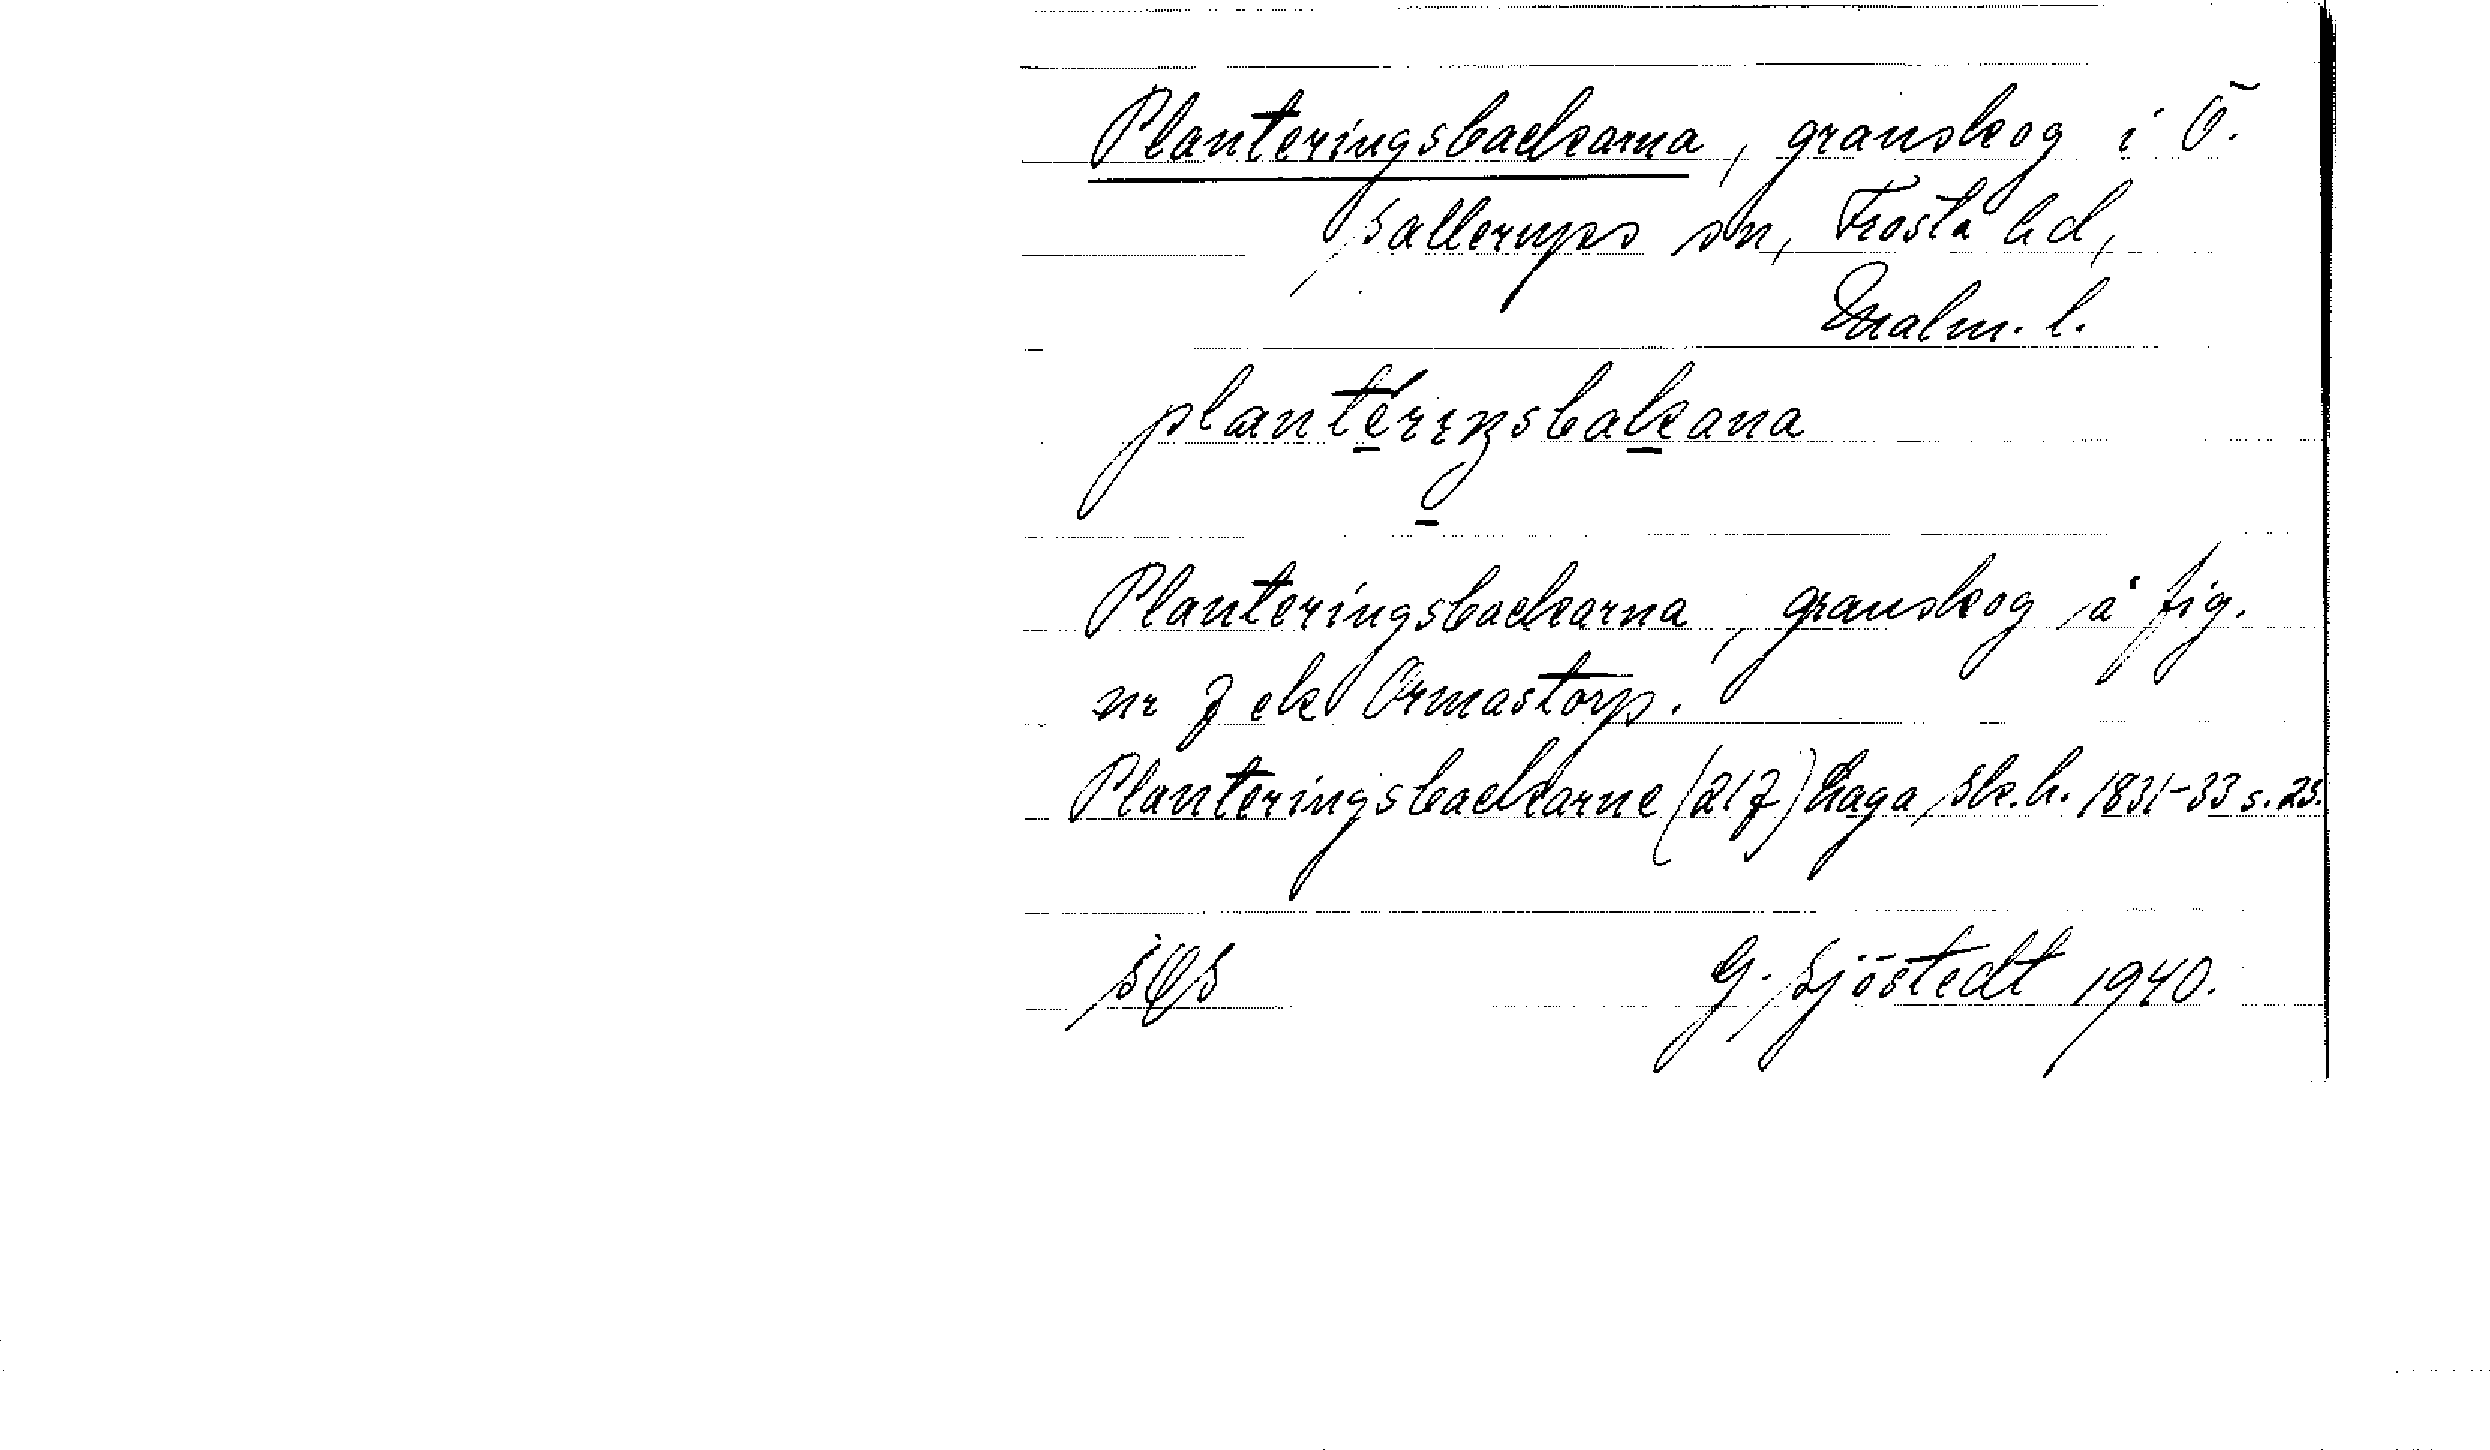 Planteringsbackarna, granskog i Ö.
Sallerups sn, Frosta hd,
Malm. l.
plantérɪŋsbakana
Planteringsbackarna, granskog å fig.
nr 7 ek Ormastorp.
Planteringsbackarne (217) Laga Sk.h. 1831-33 s. 25.
SOS G. Sjöstedt 1940.